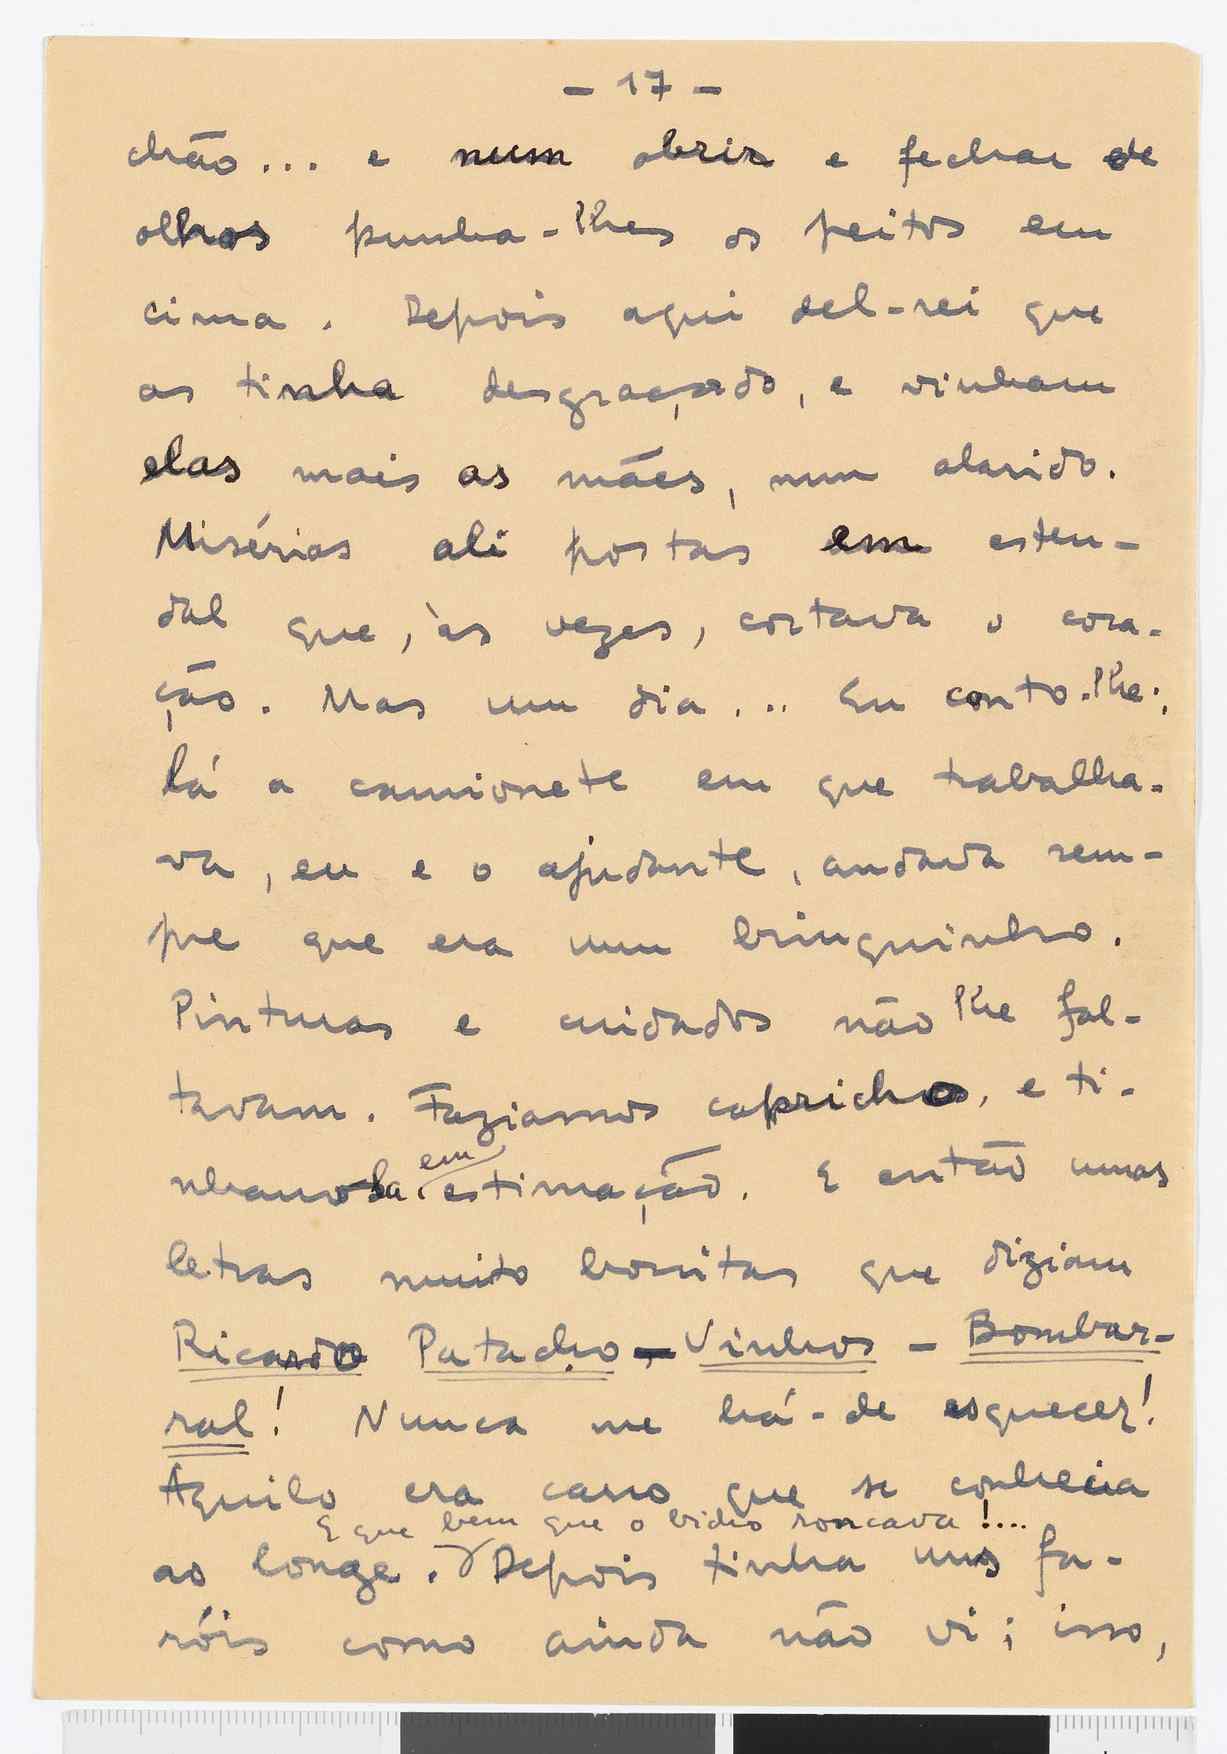 - 17 -
chão... e num abrir e fechar de
olhos punha-lhes os peitos em
cima. Depois aqui del-rei que
as tinha desgraçado, e vinham
elas mais as mães, num alarido.
Misérias ali postas em esten-
dal que, às vezes, cortava o cora-
ção. Mas um dia... Eu conto-lhe:
lá a camionete em que trabalha-
va, eu e o ajudante, andava sem-
pre que era um brinquinho.
Pinturas e cuidados não lhe fal-
tavam. Fazíamos capricho, e tí-
nhamo-la em estimação. E então umas
letras muito bonitas que diziam
Ricardo Patacho - Vinhos - Bombar-
ral! Nunca me há-de esquecer!
Aquilo era carro que se conhecia
E que bem que o bicho roncava!...
ao longe. Depois tinha uns fa-
róis como ainda não vi; isso,